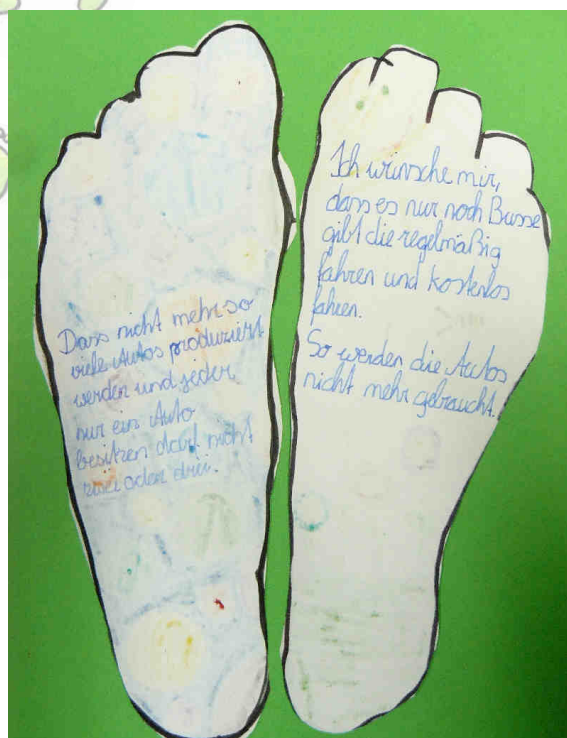 Dass nicht mehr so
viele Autos produziert
werden und jeder
nur ein Auto
besitzen darf nicht
zwei oder drei.
Ich wünsche mir,
dass es nur noch Busse
gibt die regelmäßig
fahren und kostenlos
fahren.
So werden die Autos
nicht mehr gebraucht.